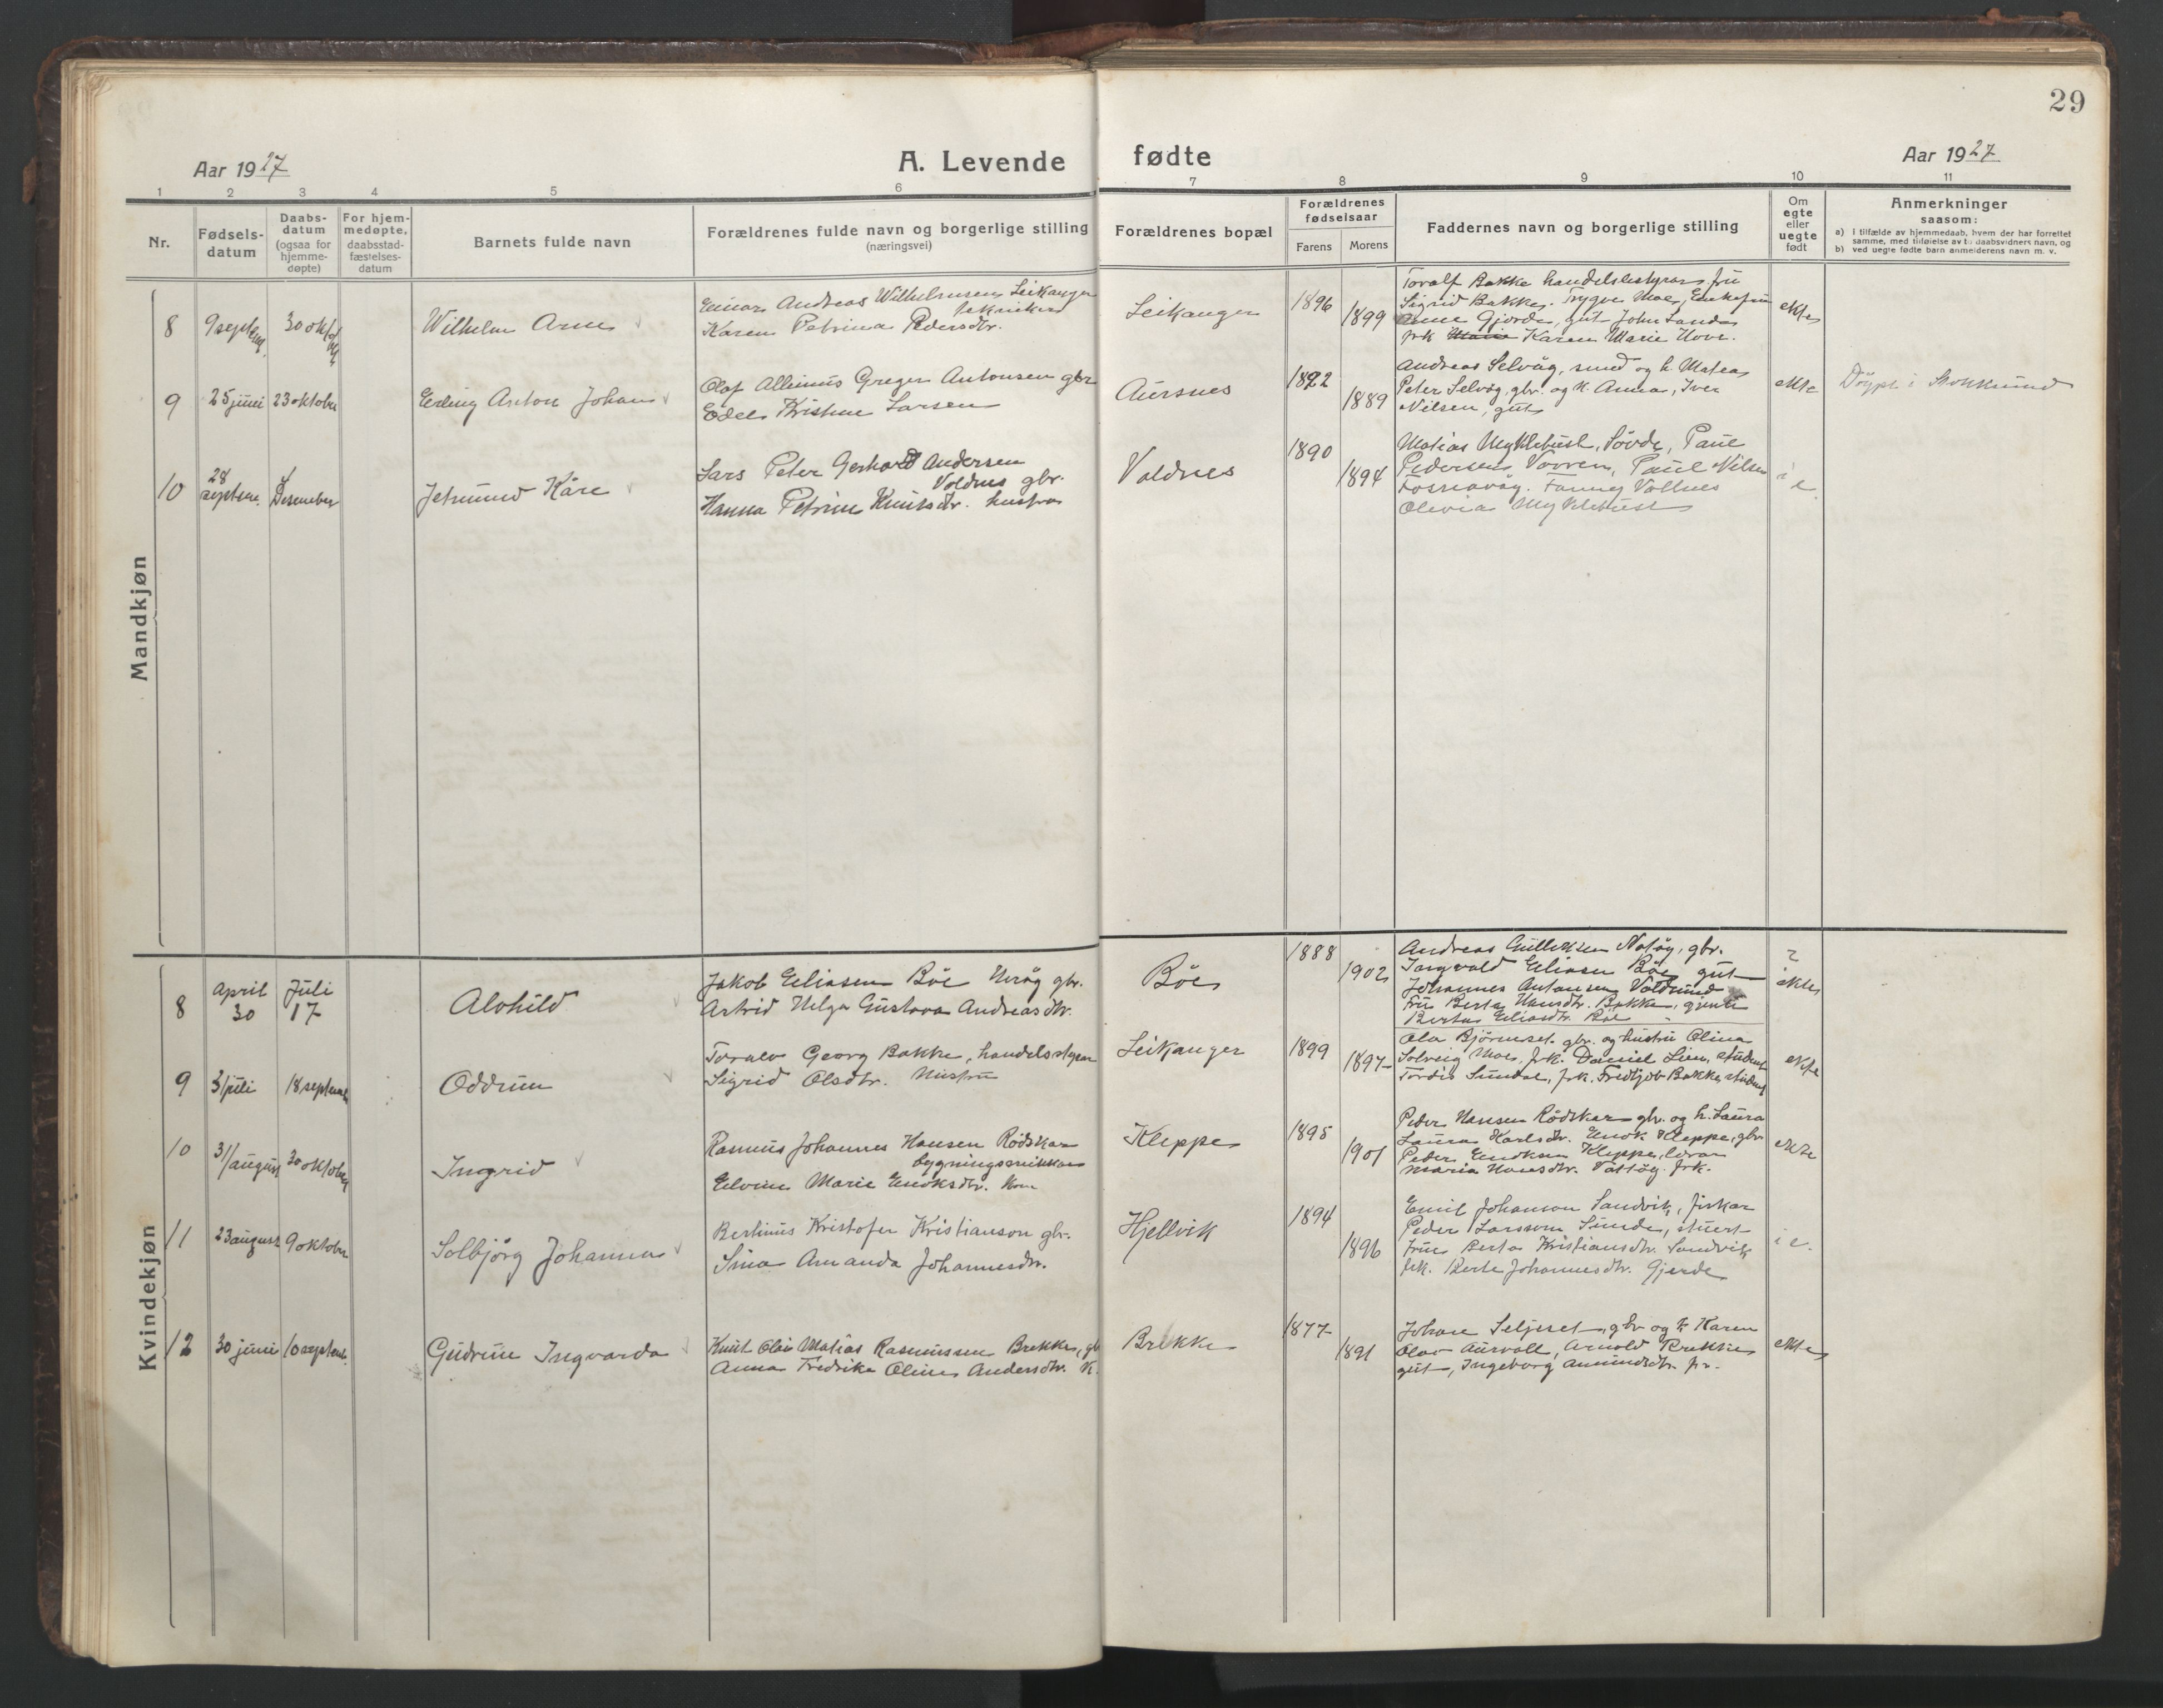 29
Aar 1927
A. Levende fødte
Aar 1927
1 2 3 4 5 6 7 8 9 10 11
Nr.
Fødsels-
datum
Daabs-
datum
(ogsaa for
hjemme-
døpte)
For hjem-
medøpte,
daabsstad-
fæstelses-
datum
Barnets fulde navn
Forældrenes fulde navn og borgerlige stilling
(næringsvei)
Forældrenes bopæl
Forældrenes
fødselsaar
Farens Morens
Faddernes navn og borgerlige stilling
Om
egte
eller
uegte
født
Anmerkninger
saasom:
a) i tilfælde av hjemmedaab, hvem der har forrettet
samme, med tilføielse av to daabsvidners navn, og
b) ved uegte fødte barn anmelderens navn m. v.
Mandkjøn
8 9 septemb. 30 oktob
Wilhelm Arne
Einar Andreas Wilhelmsen Leikanger
tekniker
Karen Petrina Pedersdtr.
Leikanger
1896
1899
Toralf Bakke handelsbestyrar, fru
Sigrid Bakke. Trygve Moe, Enkefru
Anne Gjorde, gut John Landa
frk Karen Marie Hove.
ekte
9 25 juni 23 oktober
Erling Anton Johan
Olaf Alleinus Greger Antonsen gbr
Edel Kristine Larsen
Aursnes
1892
1889
Andreas Selvåg, smed og h. Matea
Peter Selvåg, gbr. og h. Anna, Iver
Nilsen, gut
ekte
Döypt i Stokksund
10 28
septem. 4
Desember
Jetmund Kåre
Lars Peter Gerhard Andersen
Voldnes gbr.
Hanna Petrine Knutsdtr. hustru
Voldnes
1890
1894
Matias Myklebust, Sövde, Paul
Pedersen Vorren, Paul Nilsen
Fosnavåg. Fanny Vollnes
Olivia Myklebust
i e
Kvindekjøn
8 April
30 Juli
17
Alvhild
Jakob Eliassen Böe Nråg gbr.
Astrid Helga Gustava Andreasdtr.
Böe
1888
1902
Andreas Gulliksen Notöy, gbr.
Ingvald Eliasen Böe gut
Johannes Antonsen Voldsund
Fru Berta Hansdtr. Bakke, gjenta
Berta Eliasdtr. Böe
ekte
9 31 juli 18 september
Oddrun
Toralv Georg Bakke, handelsstyrar
Sigrid Olsdtr. Hustru
Leikanger
1899
1897
Ola Björneset gbr. og hustru Olina
Solveig Moe, frk. Daniel Lien, student
Tordis Sundal, frk. Fredtjov Bakke, student
ekte
10 31 august 30 oktober
Ingrid
Rasmus Johannes Hansen Rödskar
bygningssnikkar
Elvine Marie Enoksdtr. Kone
Kleppe
1895
1901
Peder Hansen Rödskar gbr. og h. Laura
Laura Karlsdtr. Enok Kleppe, gbr
Peder Enoksen Kleppe, lærar
Maria Hansdtr. Vattöy. frk.
ekte
11 23 august 9 oktober
Solbjörg Johanna
Bertinus Kristofer Kristianson gbr.
Sina Amanda Johannesdtr.
Hjellvik
1894
1896
Emil Johanson Sandvik, fiskar
Peder Larsson Sunde, stuert
Fru Berta Kristiansdtr. Sandvik
frk. Berte Johannesdtr. Gjerde
i e.
12 30 juni 10 septemb.
Gudrun Ingvarda
Knut Olav Matias Rasmussen Brekke, gb
Anna Fredrike Oline Andersdtr. K.
Brekke
1877
1891
Johan Seljeset, gbr og k Karen
Olav Aurvoll, Arnold Brekke
gut, Ingeborg Amundsdtr. fr.
ekte